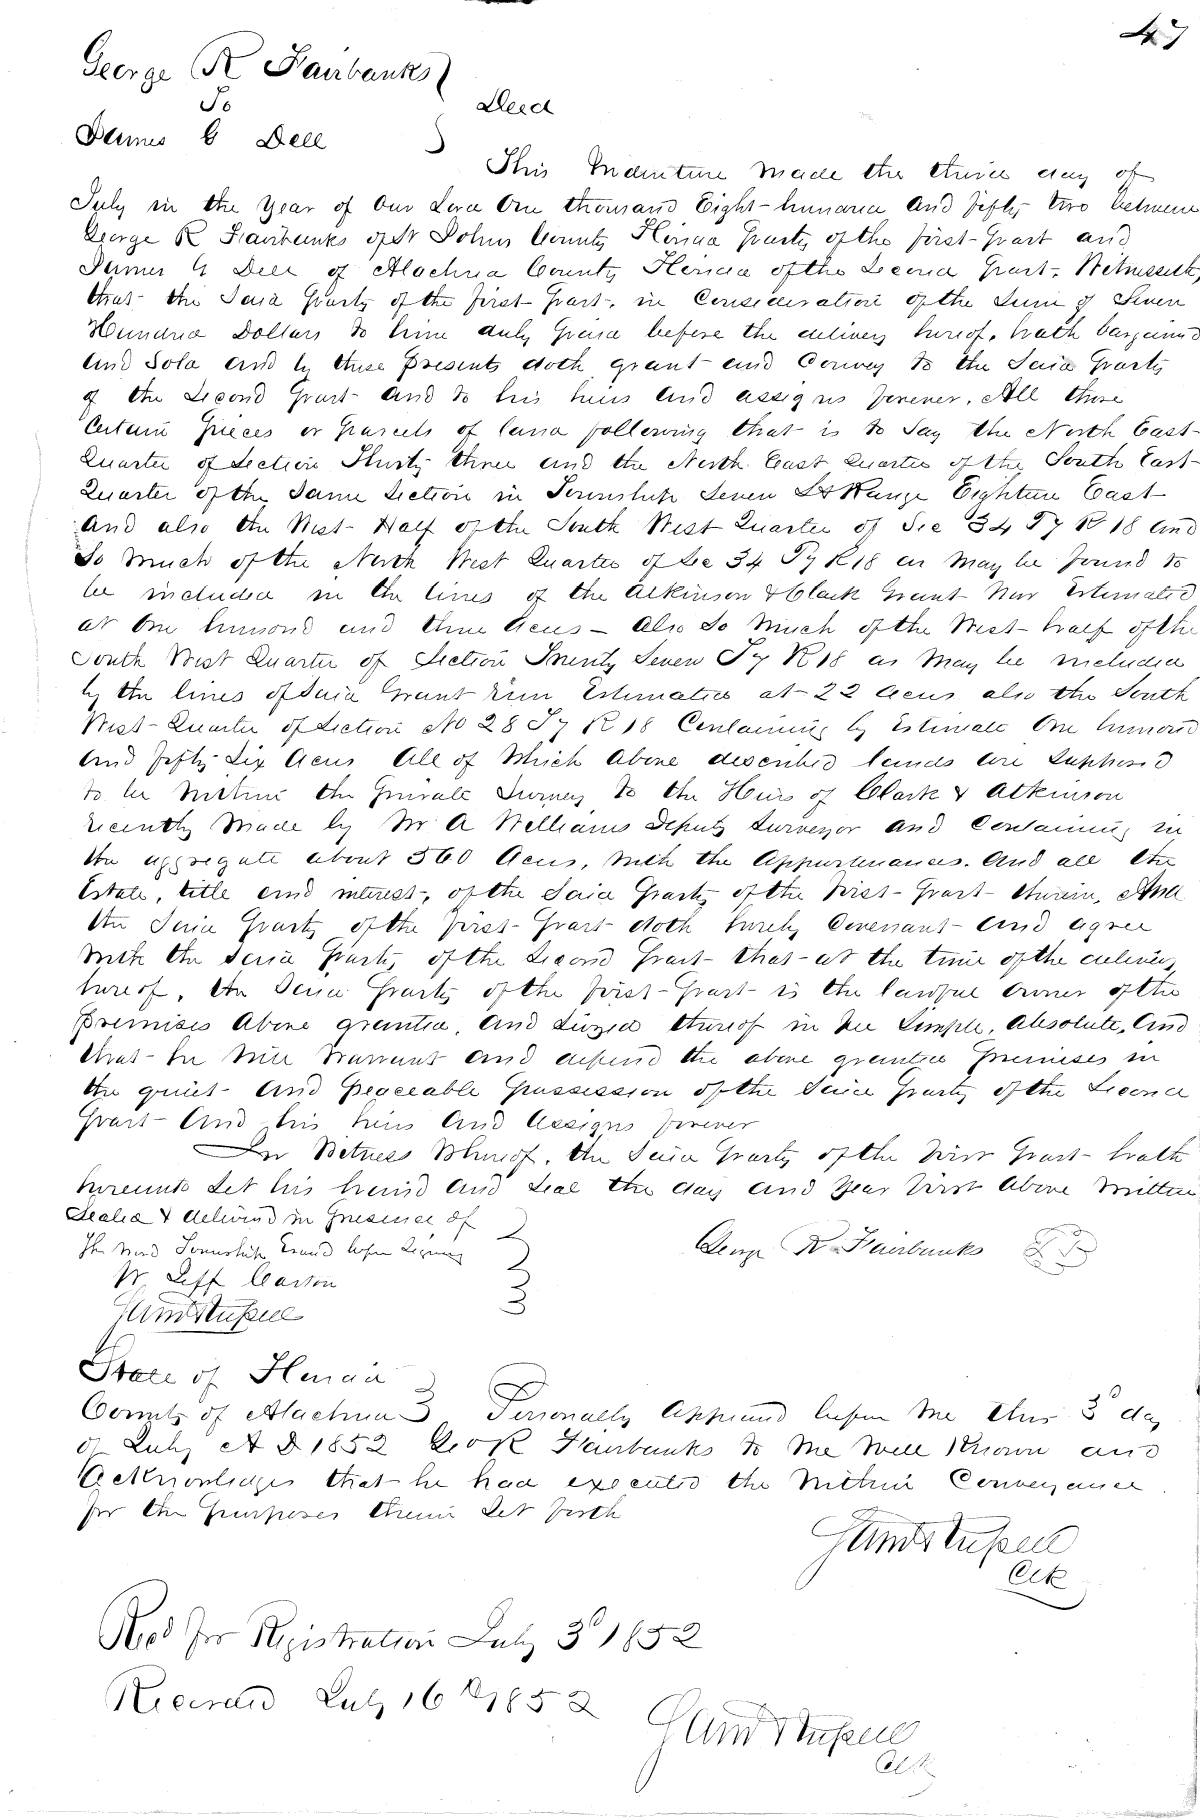 47
George R Fairbanks
To
Deed
James G Dell
This Indenture made the third day of
July in the year of our Lord One thousand Eight-hundred and fifty two between
George R Fairbanks of St Johns County Florida party of the first-part and
James G Dell of Alachua County Florida of the Second part. Witnesseth,
that the said party of the first part, in Consideration of the Sum of Seven
Hundred Dollars to him duly paid before the delivery hereof, hath bargained
and Sold and by these presents doth grant and Convey to the Said party
of the Second part and to his heirs and assigns forever. All those
Certain pieces or parcels of land following that is to Say the North East
Quarter of Section Thirty three and the North East quarter of the South East
Quarter of the Same Section in Township Seven Range Eighteen East
and also the West Half of the South West Quarter of Sec 34 T7 R 18 and
So much of the North West Quarter of Sec 34 T7 R18 as may be found to
be included in the lines of the Atkinson & Clark Grant Now Estimated
at One hundred and three Acres - also So much of the West-half of the
South West Quarter of Section Twenty Seven T7 R18 as may be included
by the lines of said Grant Estimated at 22 acres also the South
West-Quarter of Section No 28 T7 R18 Containing by Estimate One hundred
and fifty Six Acres All of Which above described lands are supposed
to be within the private Survey to the Heirs of Clark & Atkinson
recently made by Mr A Williams Deputy Surveyor and Containing in
the aggregate about 560 Acres, with the appurtenances. And all the
Estate, title and interest, of the Said party of the First-part therein, And
the Said party of the first-part doth hereby Covenant and agree
with the Said party of the Second part that at the time of the delivery
hereof, the Said party of the first-part is the lawful owner of the
premises above granted, and Siezed thereof in Fee Simple, absolute, and
that he will warrant and defend the above granted premises in
the quiet and peaceable possession of the Said party of the Second
part and his heirs and Assigns forever
In Witness Whereof, the Said party of the First part hath
hereunto Set his hand and Seal the day and year First above written
Sealed & delivered in presence of
The word Township Erased before Signing
George R Fairbanks
W Jeff Carson
Saml Russell
State of Florida
County of Alachua Personally appeared before me this 3d day
of July A D 1852 Geo R Fairbanks to me well Known and
Acknowledges that he had executed the Within Conveyance
for the purposes therein Set forth
Saml Russell
Clk
Recd for Registration July 3d 1852
Recorded July 16th 1852
Saml Russell
Clk